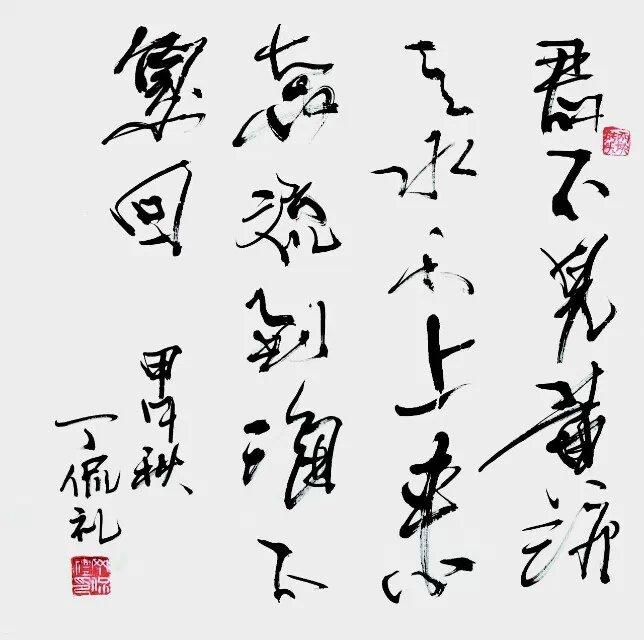 君不見黄河
之水天上来
奔流到海不
复回
甲午秋
丁侃礼